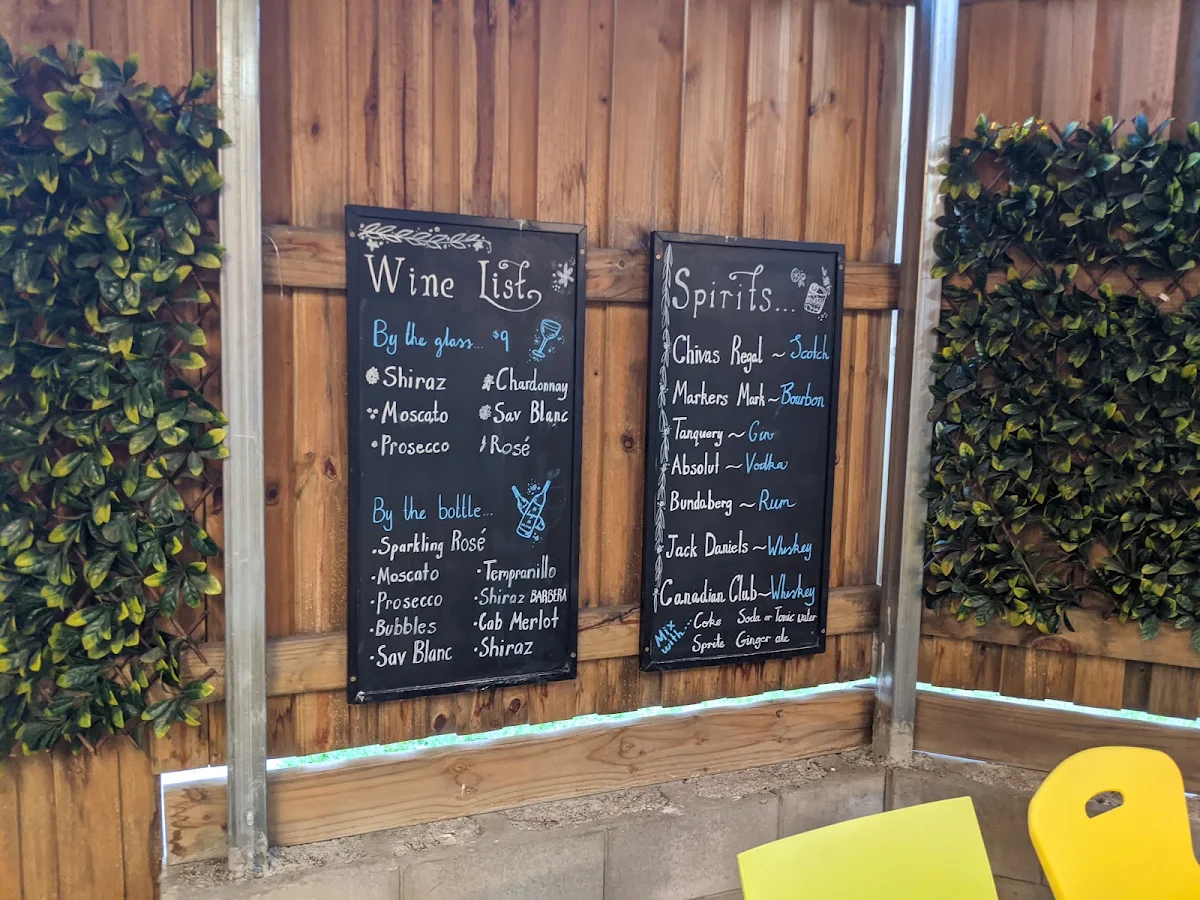 Wine List
By the glass... $9
Shiraz
Chardonnay
Moscato
Sav Blanc
Prosecco
Rosé
By the bottle...
Sparkling Rosé
Moscato
Prosecco
Bubbles
Sav Blanc
Tempranillo
Shiraz BARBERA
Cab Merlot
Shiraz
Spirits...
Chivas Regal ~ Scotch
Markers Mark ~ Bourbon
Tanquery ~ Gin
Absolut ~ Vodka
Bundaberg ~ Rum
Jack Daniels ~ Whiskey
Canadian Club ~ Whiskey
Mix with: Coke Soda or Tonic water
Sprite Ginger ale